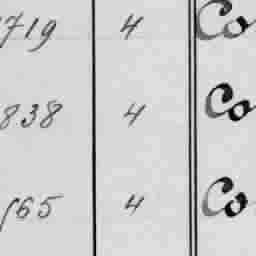 719 4 Co
838 4 Co
565 4 Co